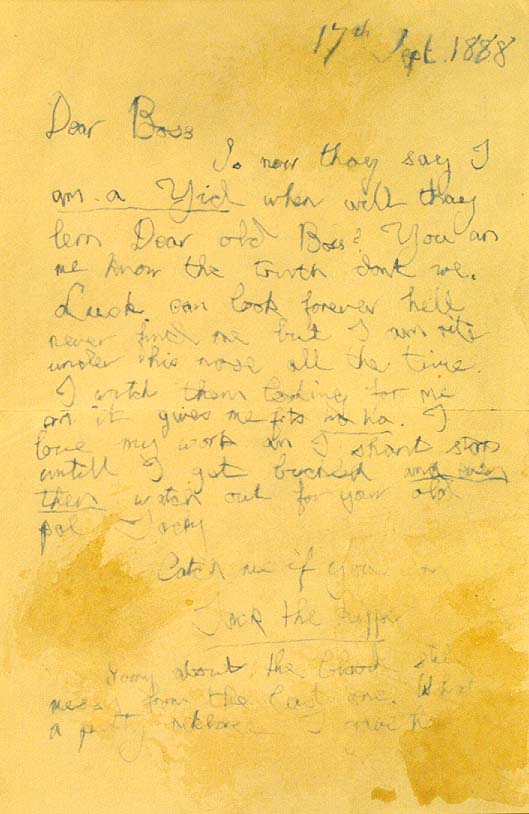 17th Sept 1888
Dear Boss
So now they say I
am a Yid when will they
lern Dear old Boss? You an
me know the truth dont we.
Lusk can look forever hell
never find me but I am rite
under his nose all the time.
I watch them looking for me
an it gives me fits ha ha. I
love my work an I shant stop
untill I get buckled and even
then watch out for your old
pal Jacky
Catch me if you can
Jack the Ripper
Sorry about the blood still
messy from the last one. What
a pretty necklace I gave